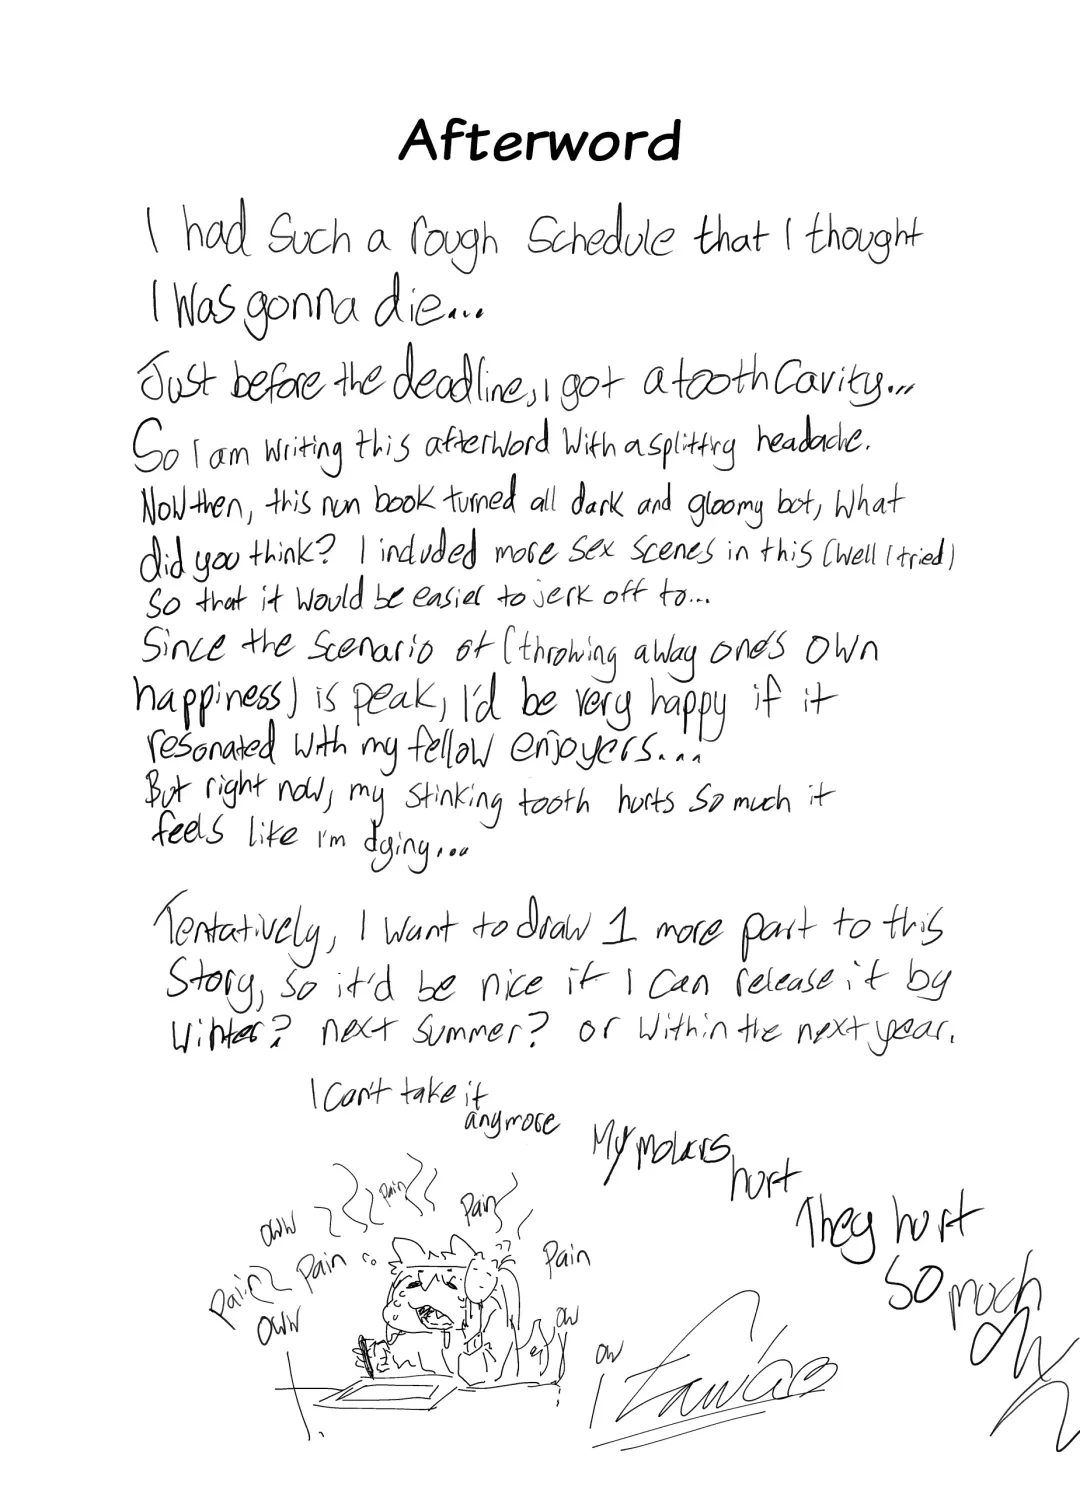 Afterword
I had such a rough schedule that I thought
I was gonna die...
Just before the deadline, I got a tooth cavity...
So I am writing this afterword with a splitting headache.
Now then, this nun book turned all dark and gloomy but, what
did you think? I included more sex scenes in this (well I tried)
so that it would be easier to jerk off to...
Since the scenario of (throwing away one's own
happiness) is peak, I'd be very happy if it
resonated with my fellow enjoyers....
But right now, my stinking tooth hurts so much it
feels like I'm dying....
Tentatively, I want to draw 1 more part to this
story, so it'd be nice if I can release it by
winter? next summer? or within the next year.
I can't take it
anymore
My molars
hurt
They hurt
so much
oww
Pain
Pain
Pain
oww
Pain
Pain
oww
ow
ow